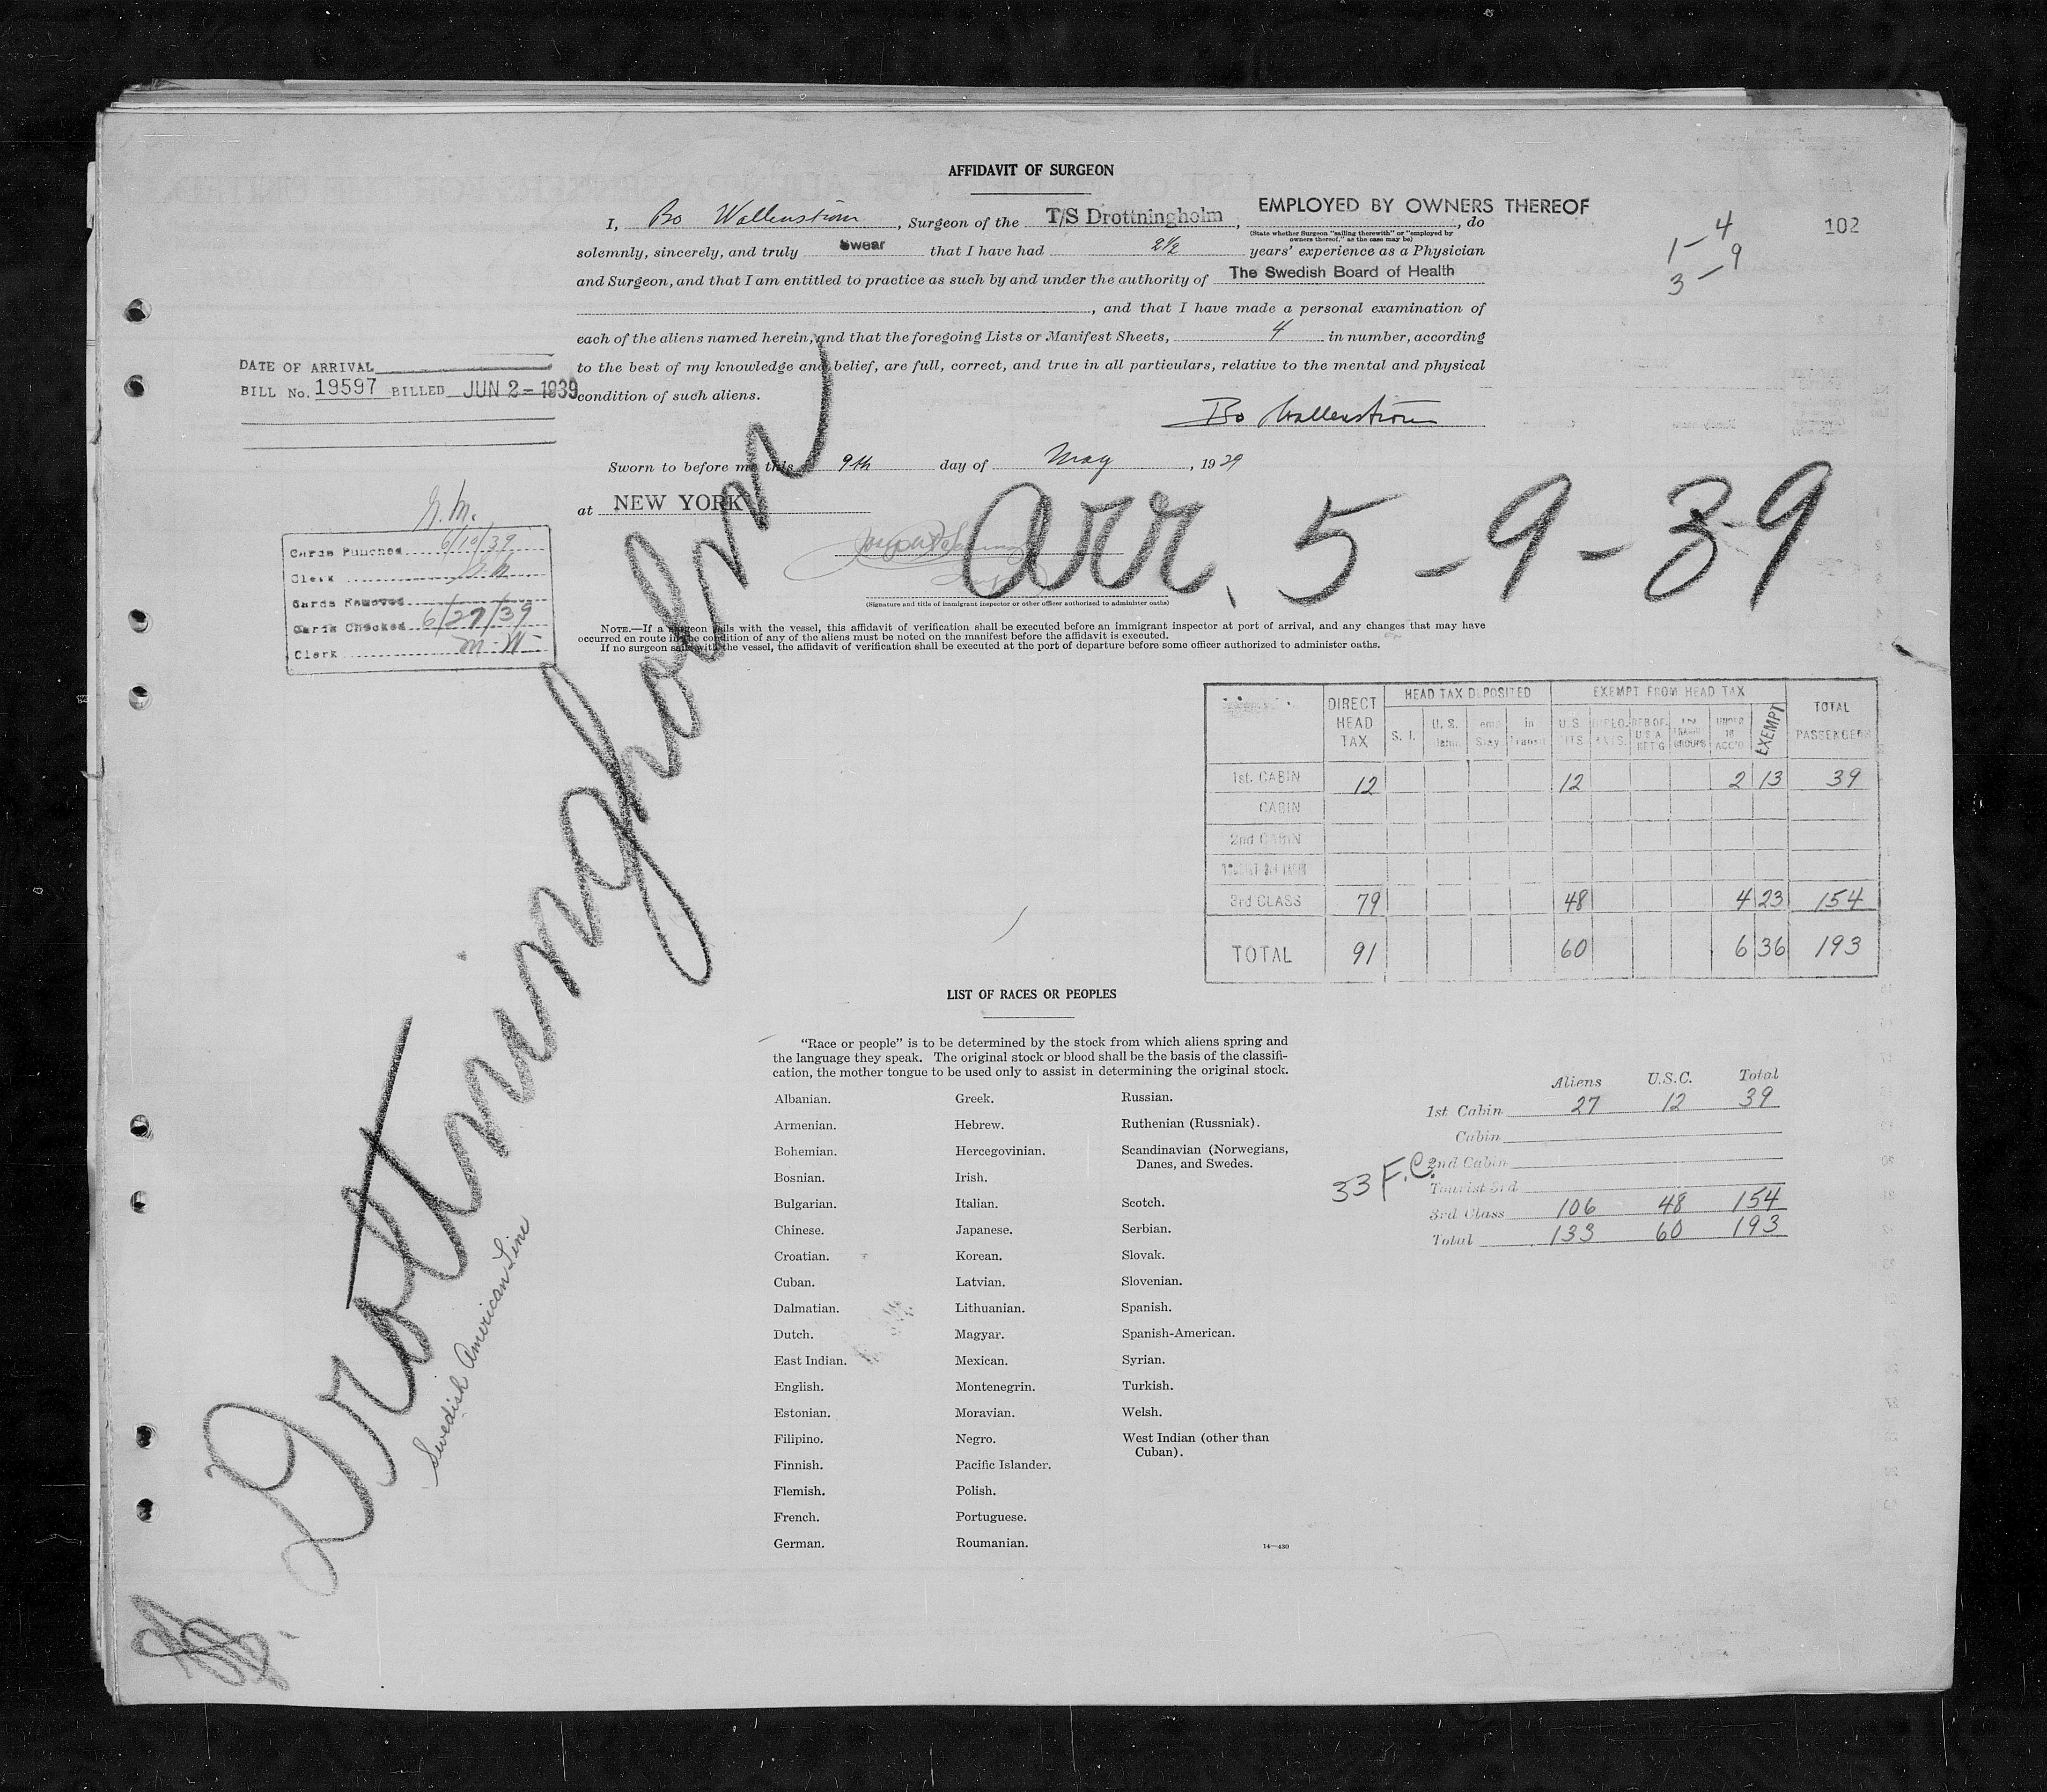 AFFIDAVIT OF SURGEON
I, Bo Wallenström, Surgeon of the T/S Drottningholm, EMPLOYED BY OWNERS THEREOF, do
(State whether Surgeon "sailing therewith" or "employed by owners thereof," as the case may be)
solemnly, sincerely, and truly Swear that I have had 2½ years' experience as a Physician
and Surgeon, and that I am entitled to practice as such by and under the authority of The Swedish Board of Health
, and that I have made a personal examination of
each of the aliens named herein, and that the foregoing Lists or Manifest Sheets, 4 in number, according
to the best of my knowledge and belief, are full, correct, and true in all particulars, relative to the mental and physical
condition of such aliens.
Bo Wallenström
1-4
3-9
102
DATE OF ARRIVAL
BILL No. 19597 BILLED JUN 2-1939
Sworn to before me this 9th day of May, 1939
at NEW YORK
arr. 5-9-39
(Signature and title of immigrant inspector or other officer authorized to administer oaths)
Cards Punched 6/10/39
Clerk
Cards Removed
Cards Checked 6/27/39
Clerk M.W.
NOTE.—If a surgeon sails with the vessel, this affidavit of verification shall be executed before an immigrant inspector at port of arrival, and any changes that may have
occurred en route in the condition of any of the aliens must be noted on the manifest before the affidavit is executed.
If no surgeon sails with the vessel, the affidavit of verification shall be executed at the port of departure before some officer authorized to administer oaths.
Drottningholm
Swedish American Line
DIRECT HEAD TAX | HEAD TAX DEPOSITED | EXEMPT FROM HEAD TAX | TOTAL PASSENGERS
S. I. | U. S. | Stay | in Transit | U.S. | DIPLOMATS. | GROUPS | UNDER 16 ACC'D | EXEMPT
1st. CABIN 12 12 2 13 39
CABIN
2nd CABIN
3rd CLASS 79 48 4 23 154
TOTAL 91 60 6 36 193
LIST OF RACES OR PEOPLES
"Race or people" is to be determined by the stock from which aliens spring and
the language they speak. The original stock or blood shall be the basis of the classifi-
cation, the mother tongue to be used only to assist in determining the original stock.
Albanian.
Armenian.
Bohemian.
Bosnian.
Bulgarian.
Chinese.
Croatian.
Cuban.
Dalmatian.
Dutch.
East Indian.
English.
Estonian.
Filipino.
Finnish.
Flemish.
French.
German.
Greek.
Hebrew.
Hercegovinian.
Irish.
Italian.
Japanese.
Korean.
Latvian.
Lithuanian.
Magyar.
Mexican.
Montenegrin.
Moravian.
Negro.
Pacific Islander.
Polish.
Portuguese.
Roumanian.
Russian.
Ruthenian (Russniak).
Scandinavian (Norwegians,
Danes, and Swedes.
Scotch.
Serbian.
Slovak.
Slovenian.
Spanish.
Spanish-American.
Syrian.
Turkish.
Welsh.
West Indian (other than
Cuban).
14—430
Aliens U.S.C. Total
1st Cabin 27 12 39
Cabin
33 F.C.
2nd Cabin
Tourist 3rd
3rd Class 106 48 154
Total 133 60 193